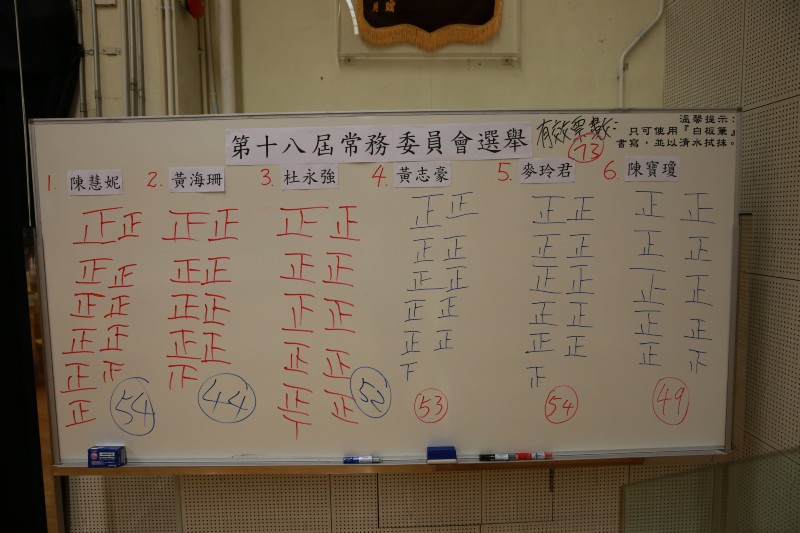 第十八屆常務委員會選舉
有效票數:
73
溫馨提示:
只可使用『白板筆』
書寫，並以清水拭抹。
1. 陳慧妮 2. 黃海珊 3. 杜永強 4. 黃志豪 5. 麥玲君 6. 陳寶瓊
正正 正正 正正 正正 正正 正正
正正 正正 正正 正正 正正 正正
正正 正正 正正 正正 正正 正正
正正 正正 正正 正正 正正 正正
正 正 正正 正正 正正 正
正 下
54 44 52 53 54 49